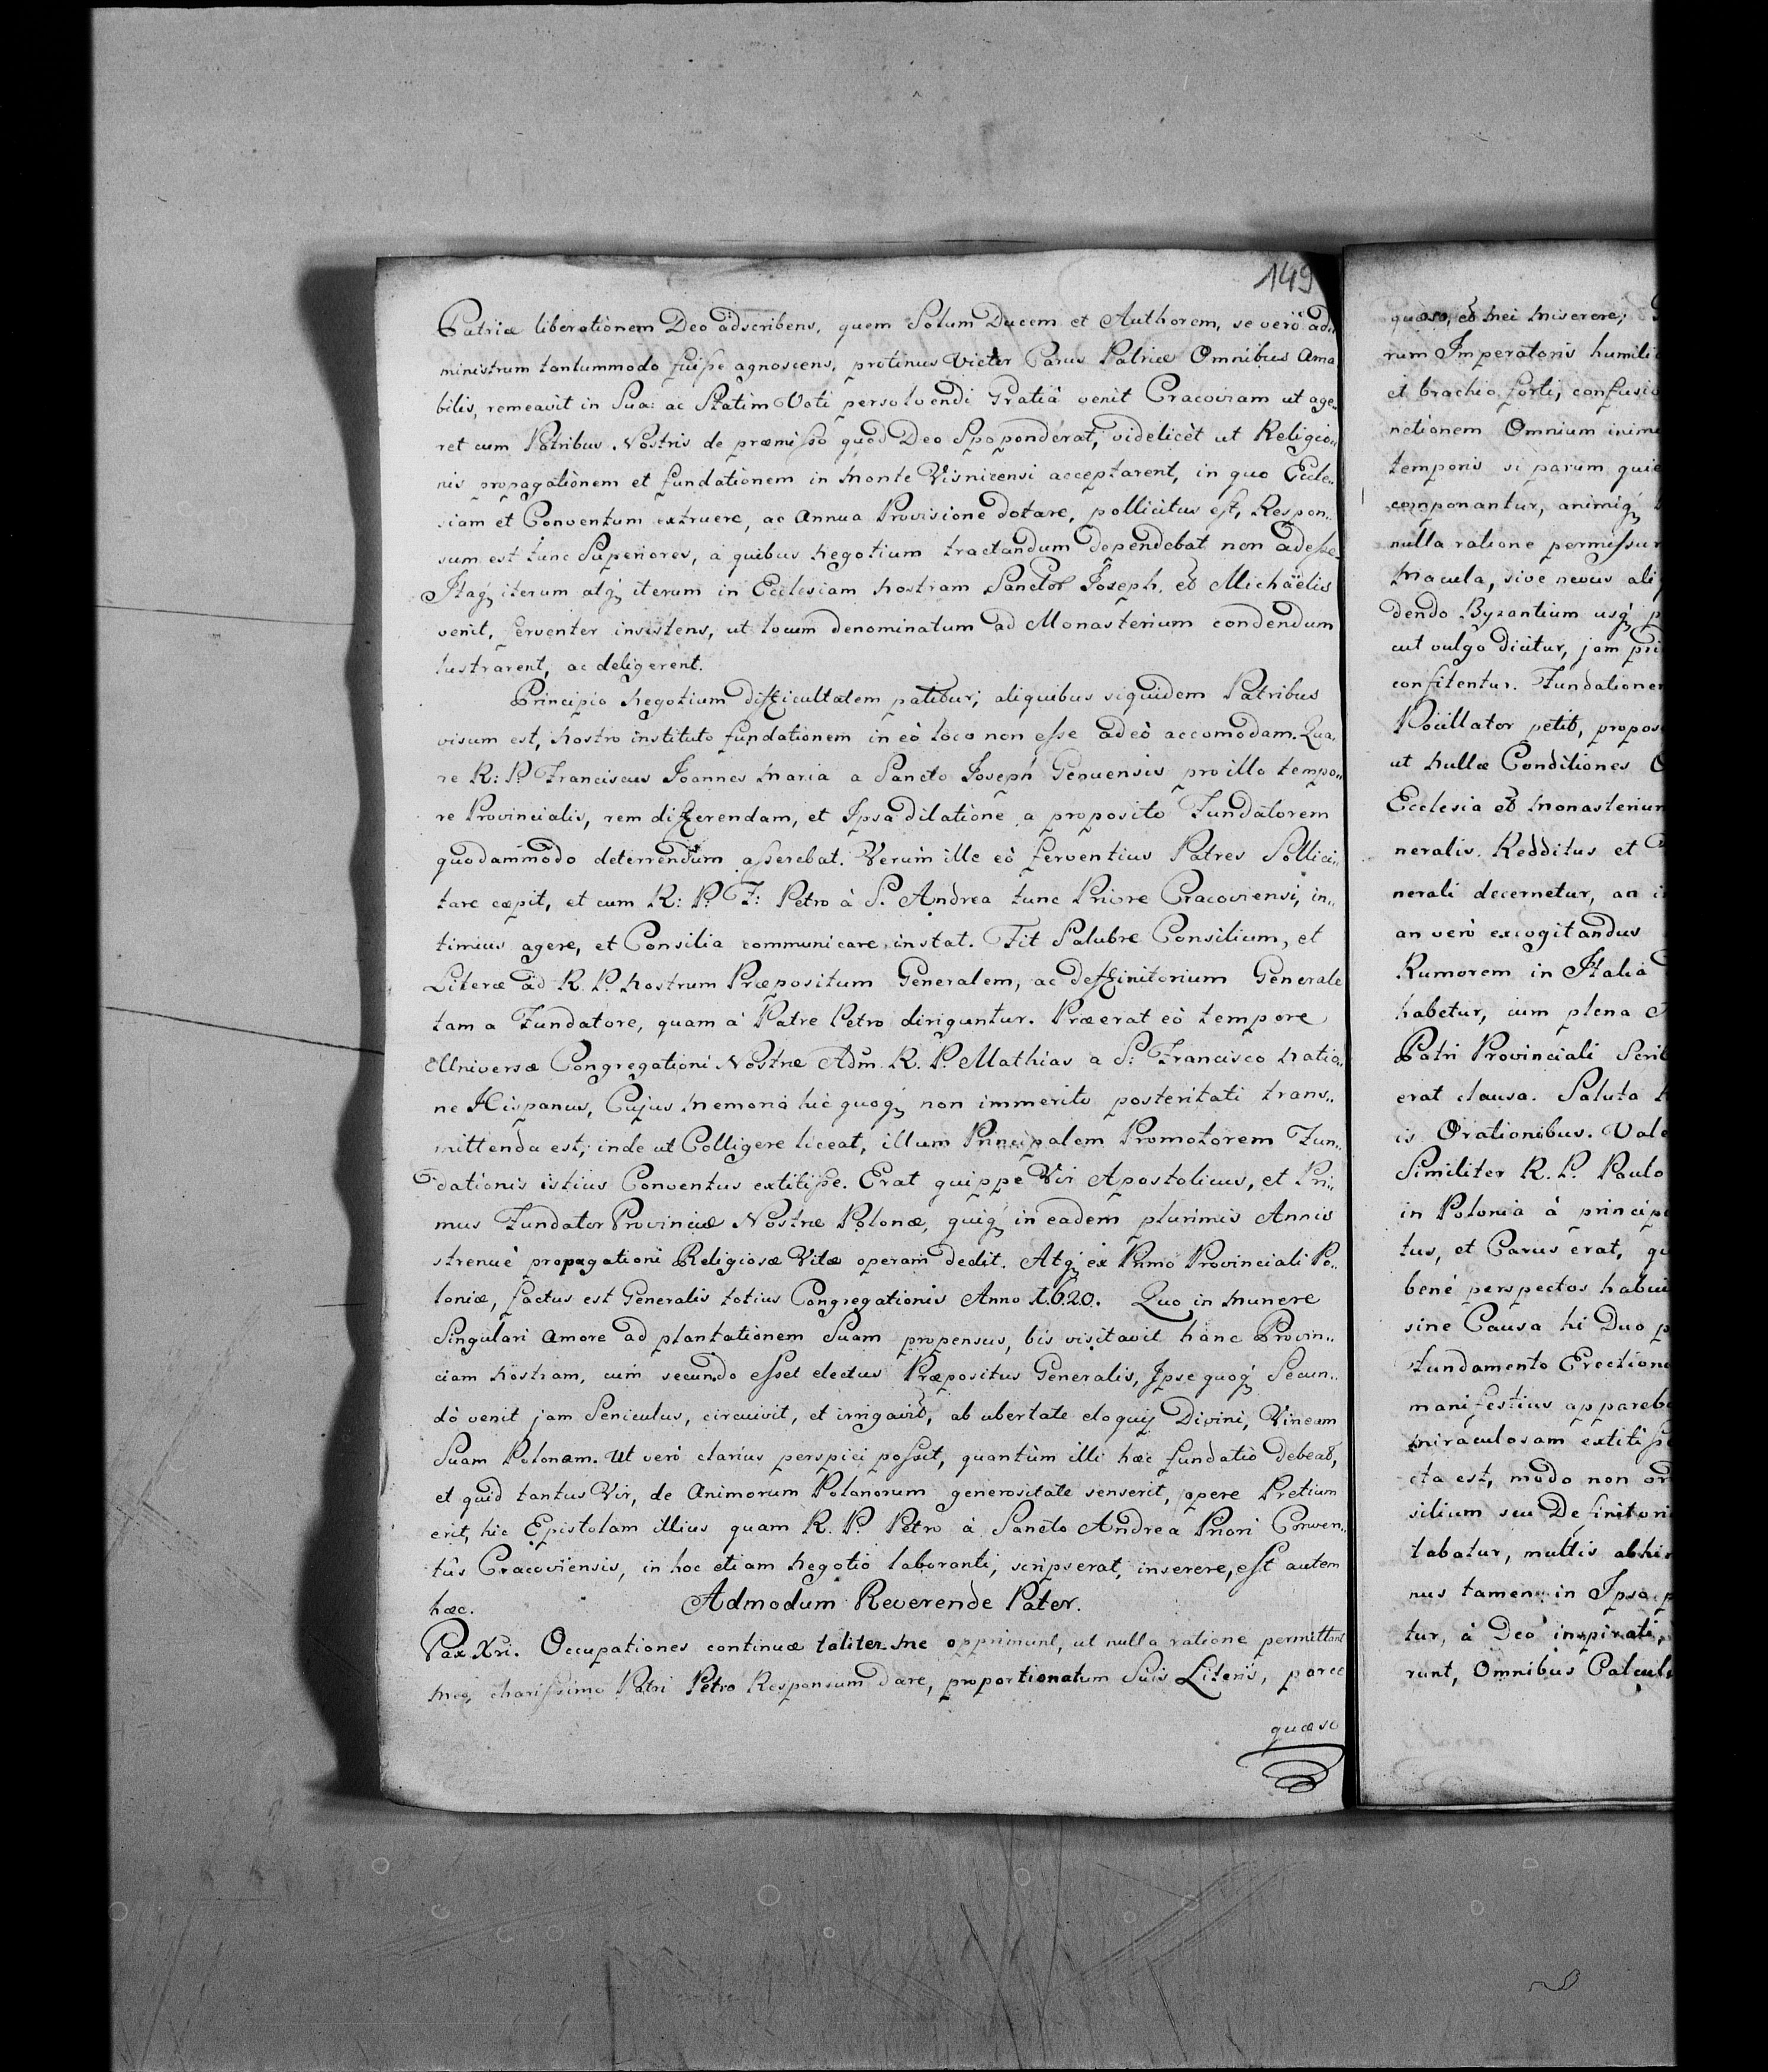 149
Patriæ liberationem Deo adscribens, quem Solum Ducem et Authorem, se verò ad„
ministrum tantummodo fuisse agnoscens, protinus Victor Carus Patriæ Omnibus Ama
bilis, remeavit in Sua: ac Statim Voti persolvendi Gratiâ venit Cracoviam ut age„
ret cum Patribus Nostris de præmisso quod Deo Spoponderat, videlicèt ut Religio„
nis propagationem et fundationem in Monte Visnicensi acceptarent, in quo Eccle„
siam et Conventum extruere, ac Annua Provisione dotare, pollicitus est, Respon„
sum est tunc Superiores, a quibus Negotium tractandum dependebat non adesse
Itaq iterum atq iterum in Ecclesiam Nostram Sanctor Joseph. et Michaëlis
venit, ferventer insistens, ut locum denominatum ad Monasterium condendum
lustrarent, ac deligerent.
Principio Negotium difficultatem patitur; aliquibus siquidem Patribus
visum est, Nostro instituto fundationem in eò loco non esse adeò accomodam. Qua„
re R: P. Franciscus Joannes Maria a Sancto Joseph Genuensis pro illo tempo„
re Provincialis, rem differendam, et Ipsa dilatione a proposito Fundatorem
quodammodo deterrendum asserebat. Verùm ille eò ferventius Patres Sollici„
tare cœpit, et cum R: P. F: Petro à S. Andrea tunc Priore Cracoviensi, in„
timius agere, et Consilia communicare instat. Fit Salubre Consilium, et
Literæ ad R. P. Nostrum Præpositum Generalem, ac deffinitorium Generale
tam a Fundatore, quam à Patre Petro diriguntur. Præerat eò tempore
Universæ Congregationi Nostræ Adm. R. P. Mathias a S: Francisco Natio„
ne Hispanus, Cujus Memoria hic quoq non immeritò posteritati trans„
mittenda est; inde ut Colligere liceat, illum Principalem Promotorem Fun„
dationis istius Conventus extitisse. Erat quippe Vir Apostolicus, et Pri„
mus Fundator Provinciæ Nostræ Polonæ, quiq in eadem plurimis Annis
strenuè propagationi Religiosæ Vitæ operam dedit. Atq ex Primo Provinciali Po„
loniæ, factus est Generalis totius Congregationis Anno 1.6.20. Quo in Munere
Singulari Amore ad plantationem Suam propensus, bis visitavit hanc Provin„
ciam Nostram, cum secundo esset electus Præpositus Generalis, Ipse quoq Secun„
dò venit jam Seniculus, circuivit, et irrigavit, ab ubertate eloquij Divini, Vineam
Suam Polonam. Ut verò clarius perspici possit, quantùm illi hæc fundatio debeat,
et quid tantus Vir, de Animorum Polonorum generositate senserit, opere Pretium
erit, hic Epistolam illius quam R. P. Petro à Sancto Andrea Priori Conven„
tûs Cracoviensis, in hoc etiam Negotio laboranti, scripserat, inserere, est autem
hæc.
Admodum Reverende Pater.
Pax Xri. Occupationes continuæ taliter me opprimunt, ut nulla ratione permittant
charissimo Patri Petro Responsum dare, proportionatum Suis Literis, parce
quæso
quæso, et Mei Miserere;
rum Imperatoris humili
et brachio forti; confusio
nctionem Omnium inim
temporis si parum quie
componantur, animiq
nulla ratione permissur
Macula, sive nevus ali
dendo Byzantium usq p
ut vulgo dicitur, jam pri
confitentur. Fundationem
Pocillator petit, propos
ut Nullæ Conditiones
Ecclesia et Monasterium
neralis. Redditus et
nerali decernetur, an i
an verò excogitandus
Rumorem in Italia
habetur, cum plena
Patri Provinciali Scrib
erat clausa. Saluta
is Orationibus. Vale
Similiter R. P. Paulo
in Polonia à princip
tus, et Carus erat, qu
benè perspectos habui
sine Causa hi Duo p
fundamento Erectione
manifestius apparebi
miraculosam extitisse
cta est, modo non or
silium seu Definitori
tabatur, multis abhi
nus tamen in Ipsa p
tur, à Deo inspirati,
runt, Omnibus Calcul